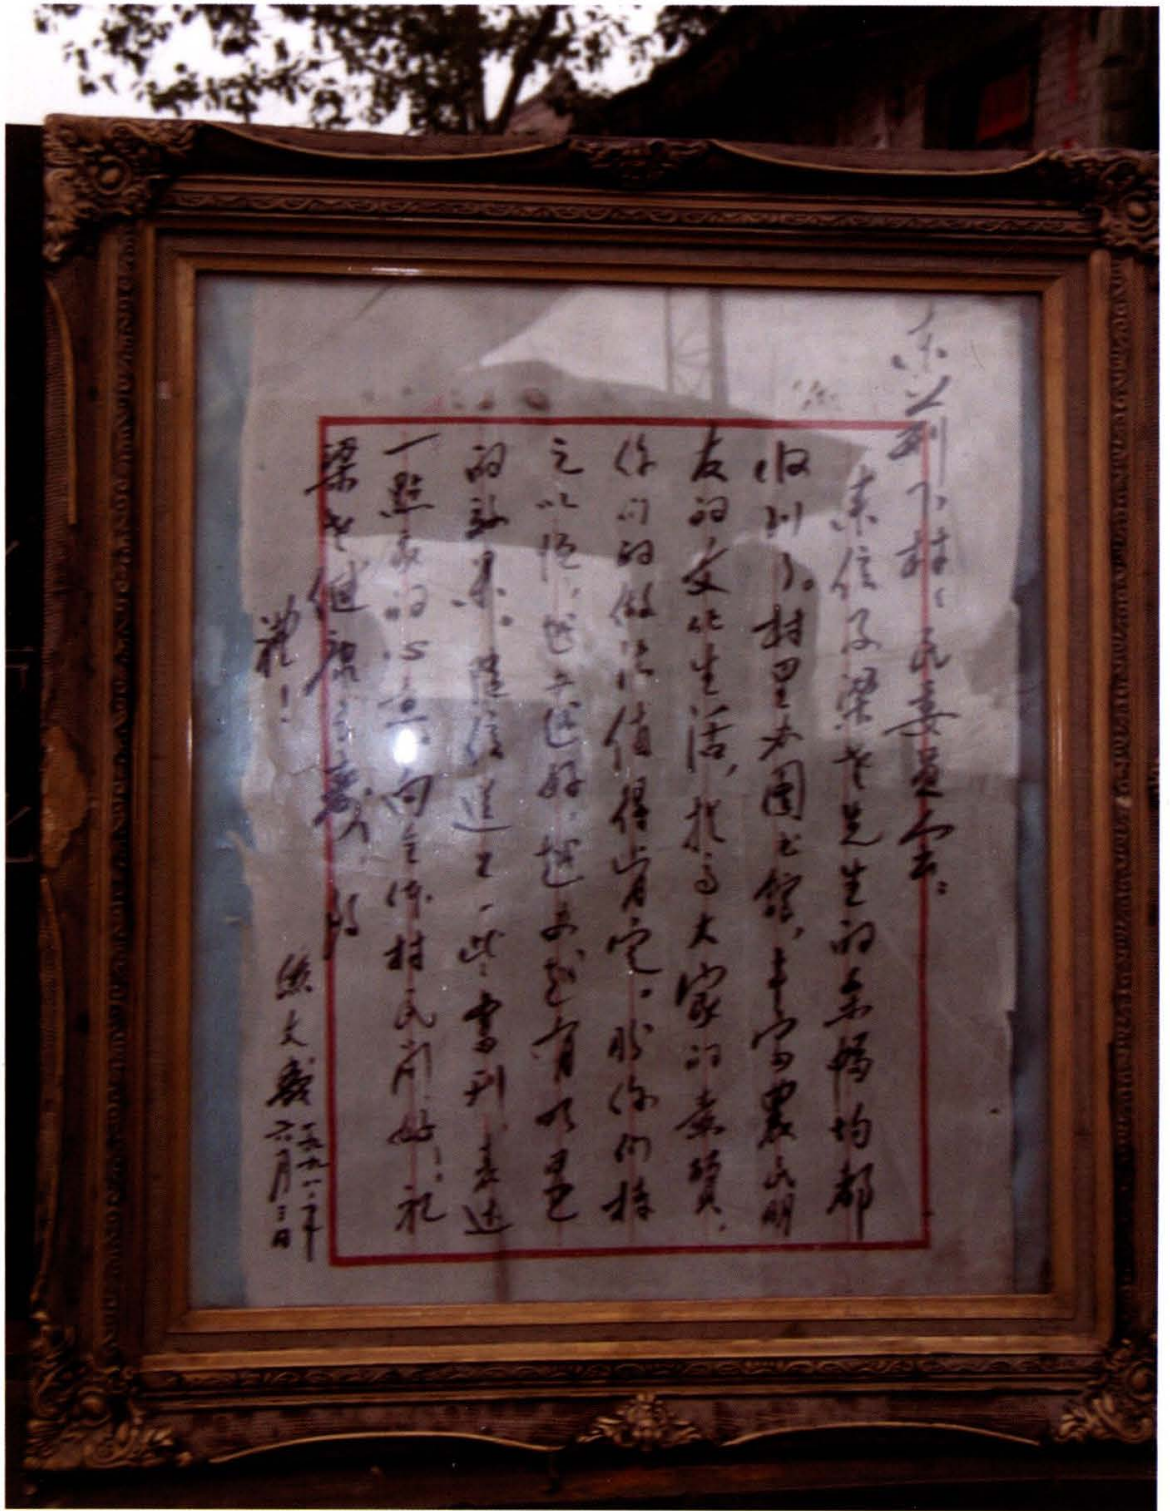 村村民委员会：
来信及梁老先生的条幅均都
收到了。村里办图书馆，丰富农民朋
友的文化生活，提高大家的素质，
你们的做法值得肯定。盼你们持
之以恒，越办越好，越办越有明显
的效果。随信送上一些书刊，表达
一点我的心意。向全体村民问好，祝
梁老健康长寿！敬
礼！
六月三日